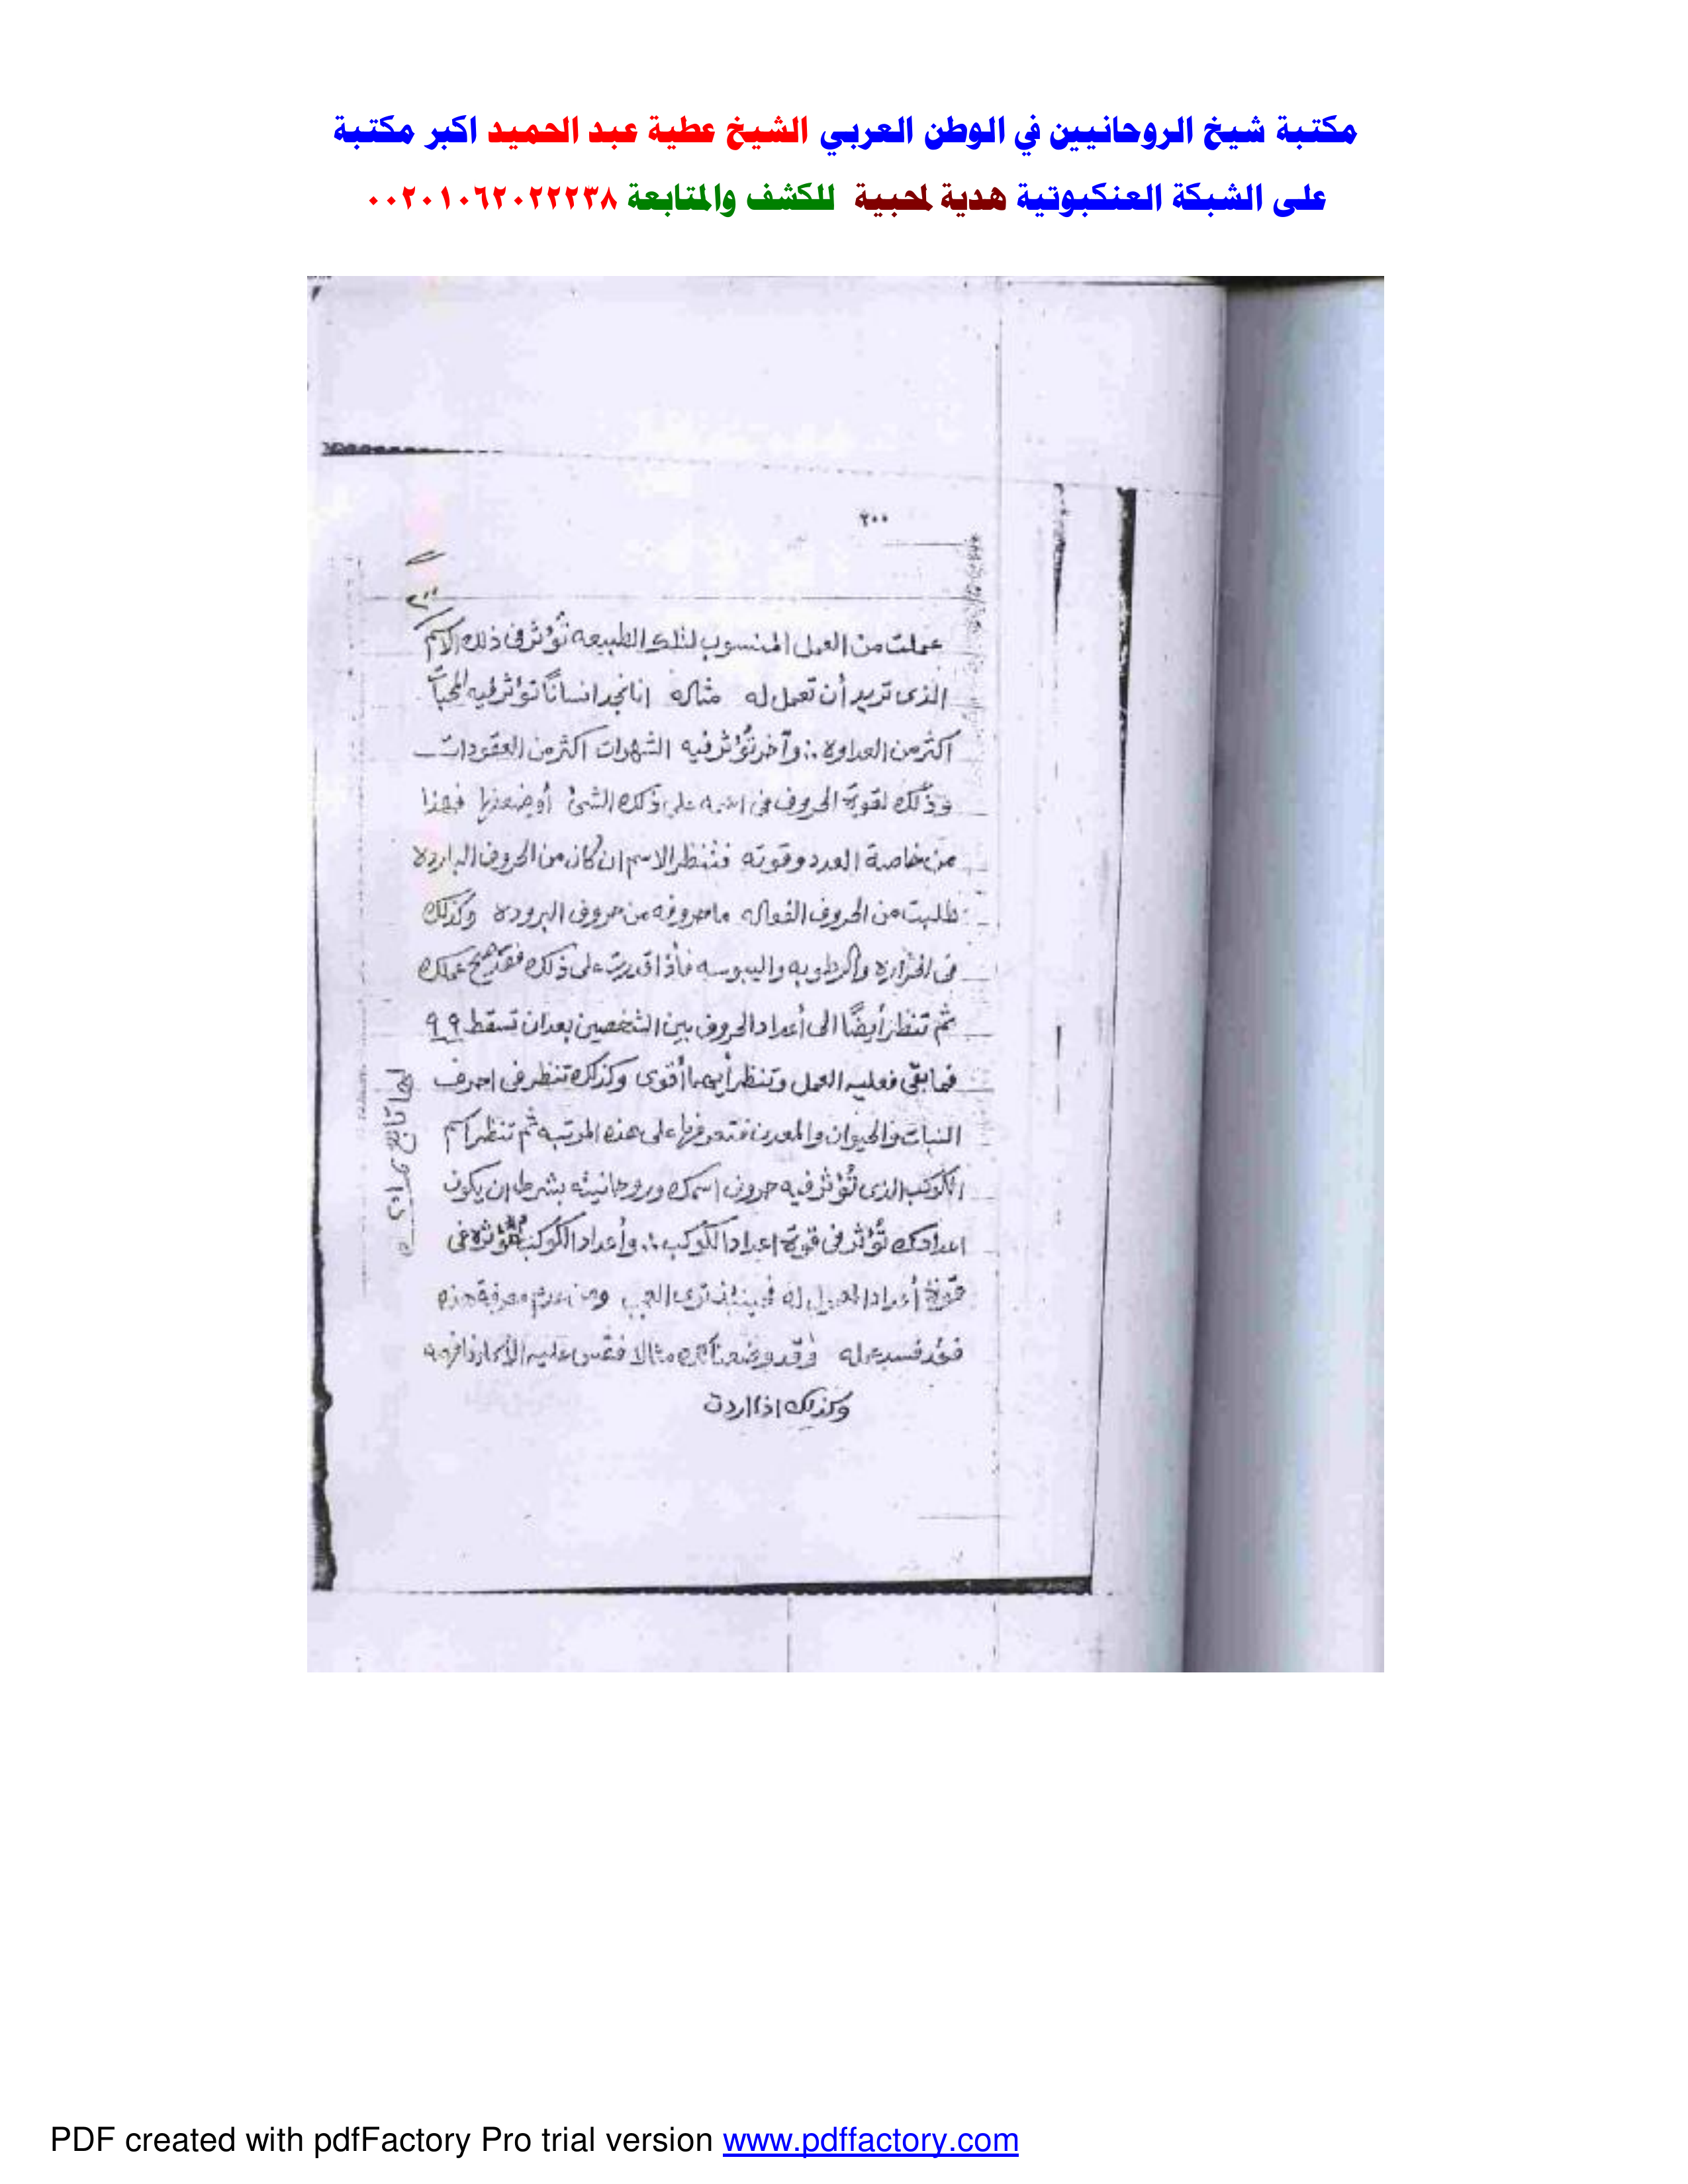 مكتبة شيخ الروحانيين في الوطن العربي الشيخ عطية عبد الحميد اكبر مكتبة
على الشبكة العنكبوتية هدية لمحبية للكشف والمتابعة ٠٠٢٠١٠٦٢٠٢٢٢٣٨
٢٠٠
عملت من العمل المنسوب لتلك الطبيعه تؤثر فى ذلك الاسم
الذى تريد أن تعمل له مثاله انا نجد انسانًا تؤثر فيه المحبات
أكثر من العداوة ∴ وآخر تؤثر فيه الشهوات اكثر من العقودات
وذلك لقوة الحروف فى اسمه على ذلك الشئ أو ضعفها فهذا
من خاصة العدد وقوته فتنظر الاسم ان كان من الحروف الباردة
طلبت من الحروف الفعاله ما حروفه من حروف البرودة وكذلك
فى الحرارة والرطوبه واليبوسه فأذا قدرت على ذلك فقد صح عملك
ثم تنظر أيضًا الى أعداد الحروف بين الشخصين بعد ان تسقط ٩٩
فما بقى فعليه العمل وتنظر أيهما أقوى وكذلك تنظر فى احرف
النبات والحيوان والمعدن فتعرفها على هذه المرتبه ثم تنظر اسم
الكوكب الذى تؤثر فيه حروف اسمك وروحانيته بشرط ان يكون
اعدادك تؤثر فى قوة اعداد الكوكب ∴ وأعداد الكوكب مؤثرة فى
قوة أعداد المعمول له فحينئذ ترى العجب ومن عدم معرفة هذه
فقد فسد عمله وقد وضعنا لك مثالا فقس عليه
وكذلك اذا اردت